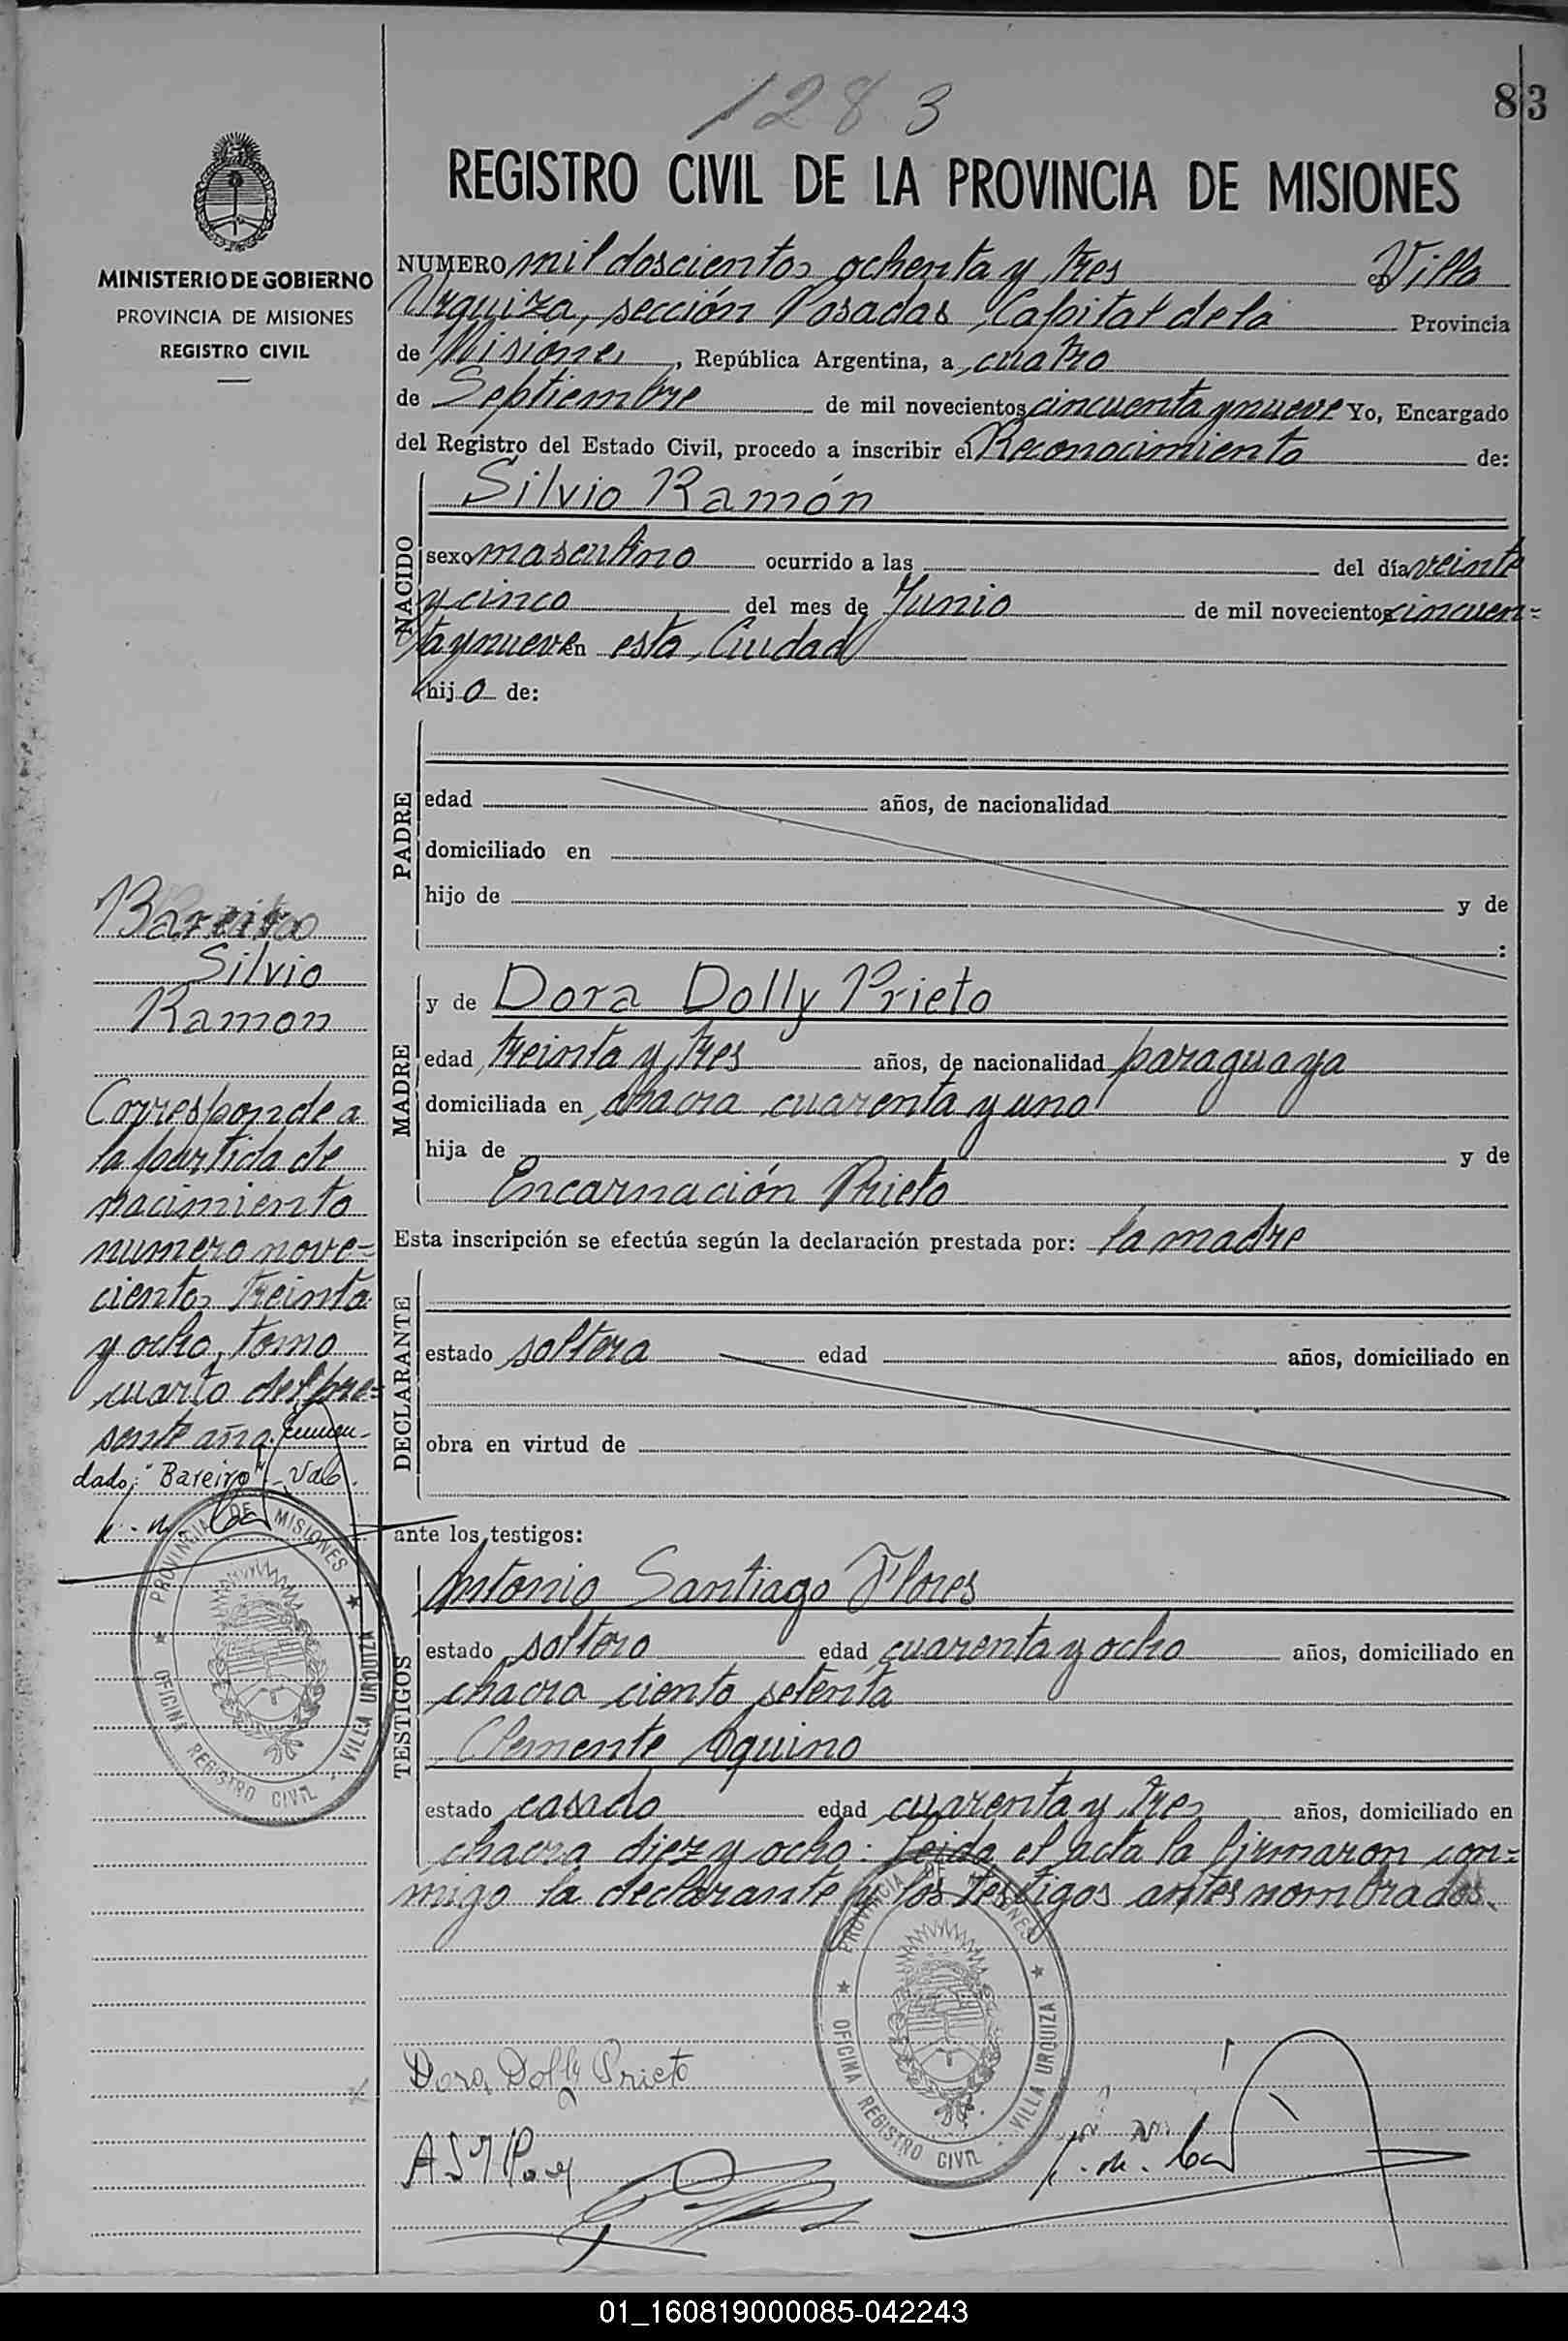 1283
83
MINISTERIO DE GOBIERNO
PROVINCIA DE MISIONES
REGISTRO CIVIL
REGISTRO CIVIL DE LA PROVINCIA DE MISIONES
NUMERO mil doscientos ochenta y tres Villa
Urquiza, sección Posadas Capital de la Provincia
de Misiones, República Argentina, a cuatro
de Septiembre de mil novecientos cincuenta y nueve Yo, Encargado
del Registro del Estado Civil, procedo a inscribir el Reconocimiento de:
NACIDO
Silvio Ramón
sexo masculino ocurrido a las del día veinte
y cinco del mes de Junio de mil novecientos cincuen=
ta y nueve en esta Ciudad
hijo de:
PADRE
edad años, de nacionalidad
domiciliado en
hijo de y de
:
MADRE
y de Dora Dolly Prieto
edad treinta y tres años, de nacionalidad paraguaya
domiciliada en chacra cuarenta y uno
hija de y de
Encarnación Prieto
Esta inscripción se efectúa según la declaración prestada por: la madre
DECLARANTE
estado soltera edad años, domiciliado en
obra en virtud de
ante los testigos:
TESTIGOS
Antonio Santiago Flores
estado soltero edad cuarenta y ocho años, domiciliado en
chacra ciento setenta
Clemente Aquino
estado casado edad cuarenta y tres años, domiciliado en
chacra diez y ocho: Leida el acta la firmaron con=
migo la declarante y los testigos antes nombrados.
Bareiro
Silvio
Ramon
Corresponde a
la partida de
nacimiento
numero nove=
cientos treinta
y ocho, tomo
cuarto del pre=
sente año. Enmen-
dado: "Bareiro" - Vale.
PROVINCIA DE MISIONES
OFICINA REGISTRO CIVIL - VILLA URQUIZA
PROVINCIA DE MISIONES
OFICINA REGISTRO CIVIL - VILLA URQUIZA
Dora Dolly Prieto
01_160819000085-042243